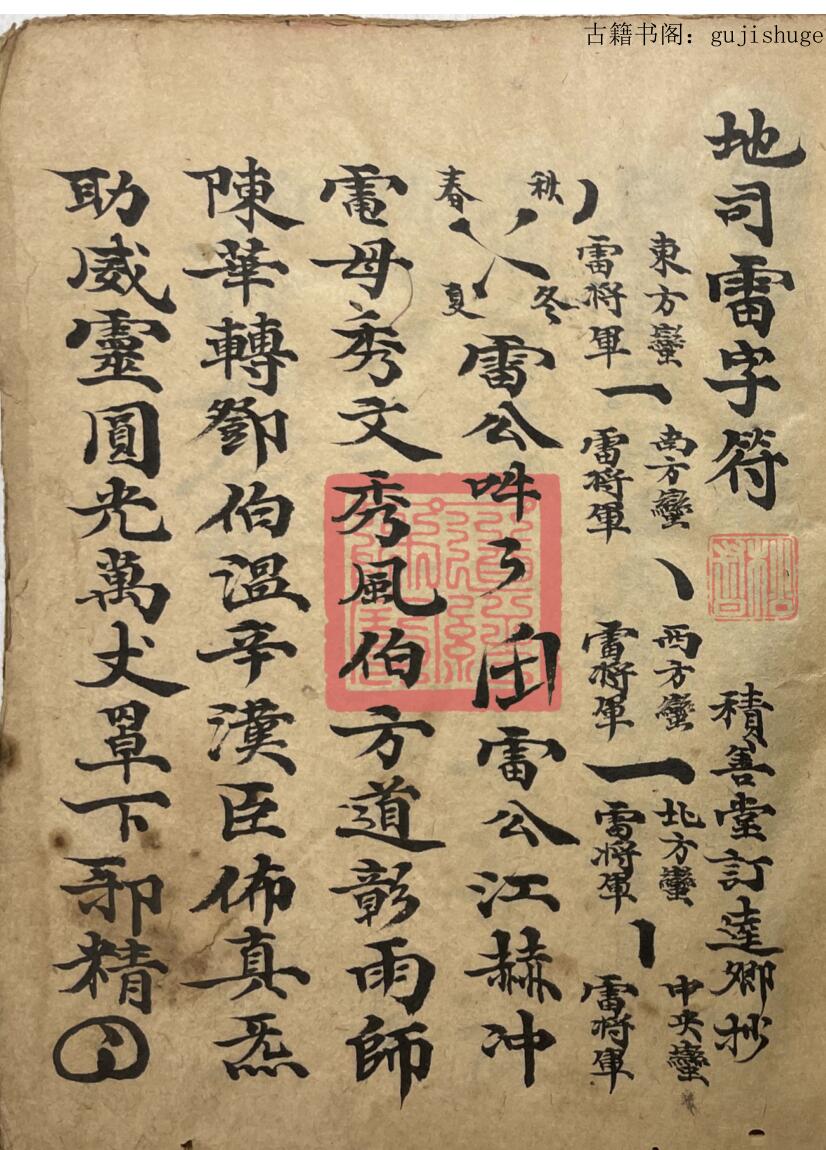 古籍书阁：gujishuge
地司雷字符
積善堂訂達卿抄
東方蠻雷將軍
南方蠻雷將軍
西方蠻雷將軍
北方蠻雷將軍
中央蠻雷將軍
秋冬
春夏
雷公吽
雷公江赫冲
電母秀文秀風伯方道彰雨師
陳華轉鄧伯溫辛漢臣佈真炁
助威靈圓光萬丈罩下邪精